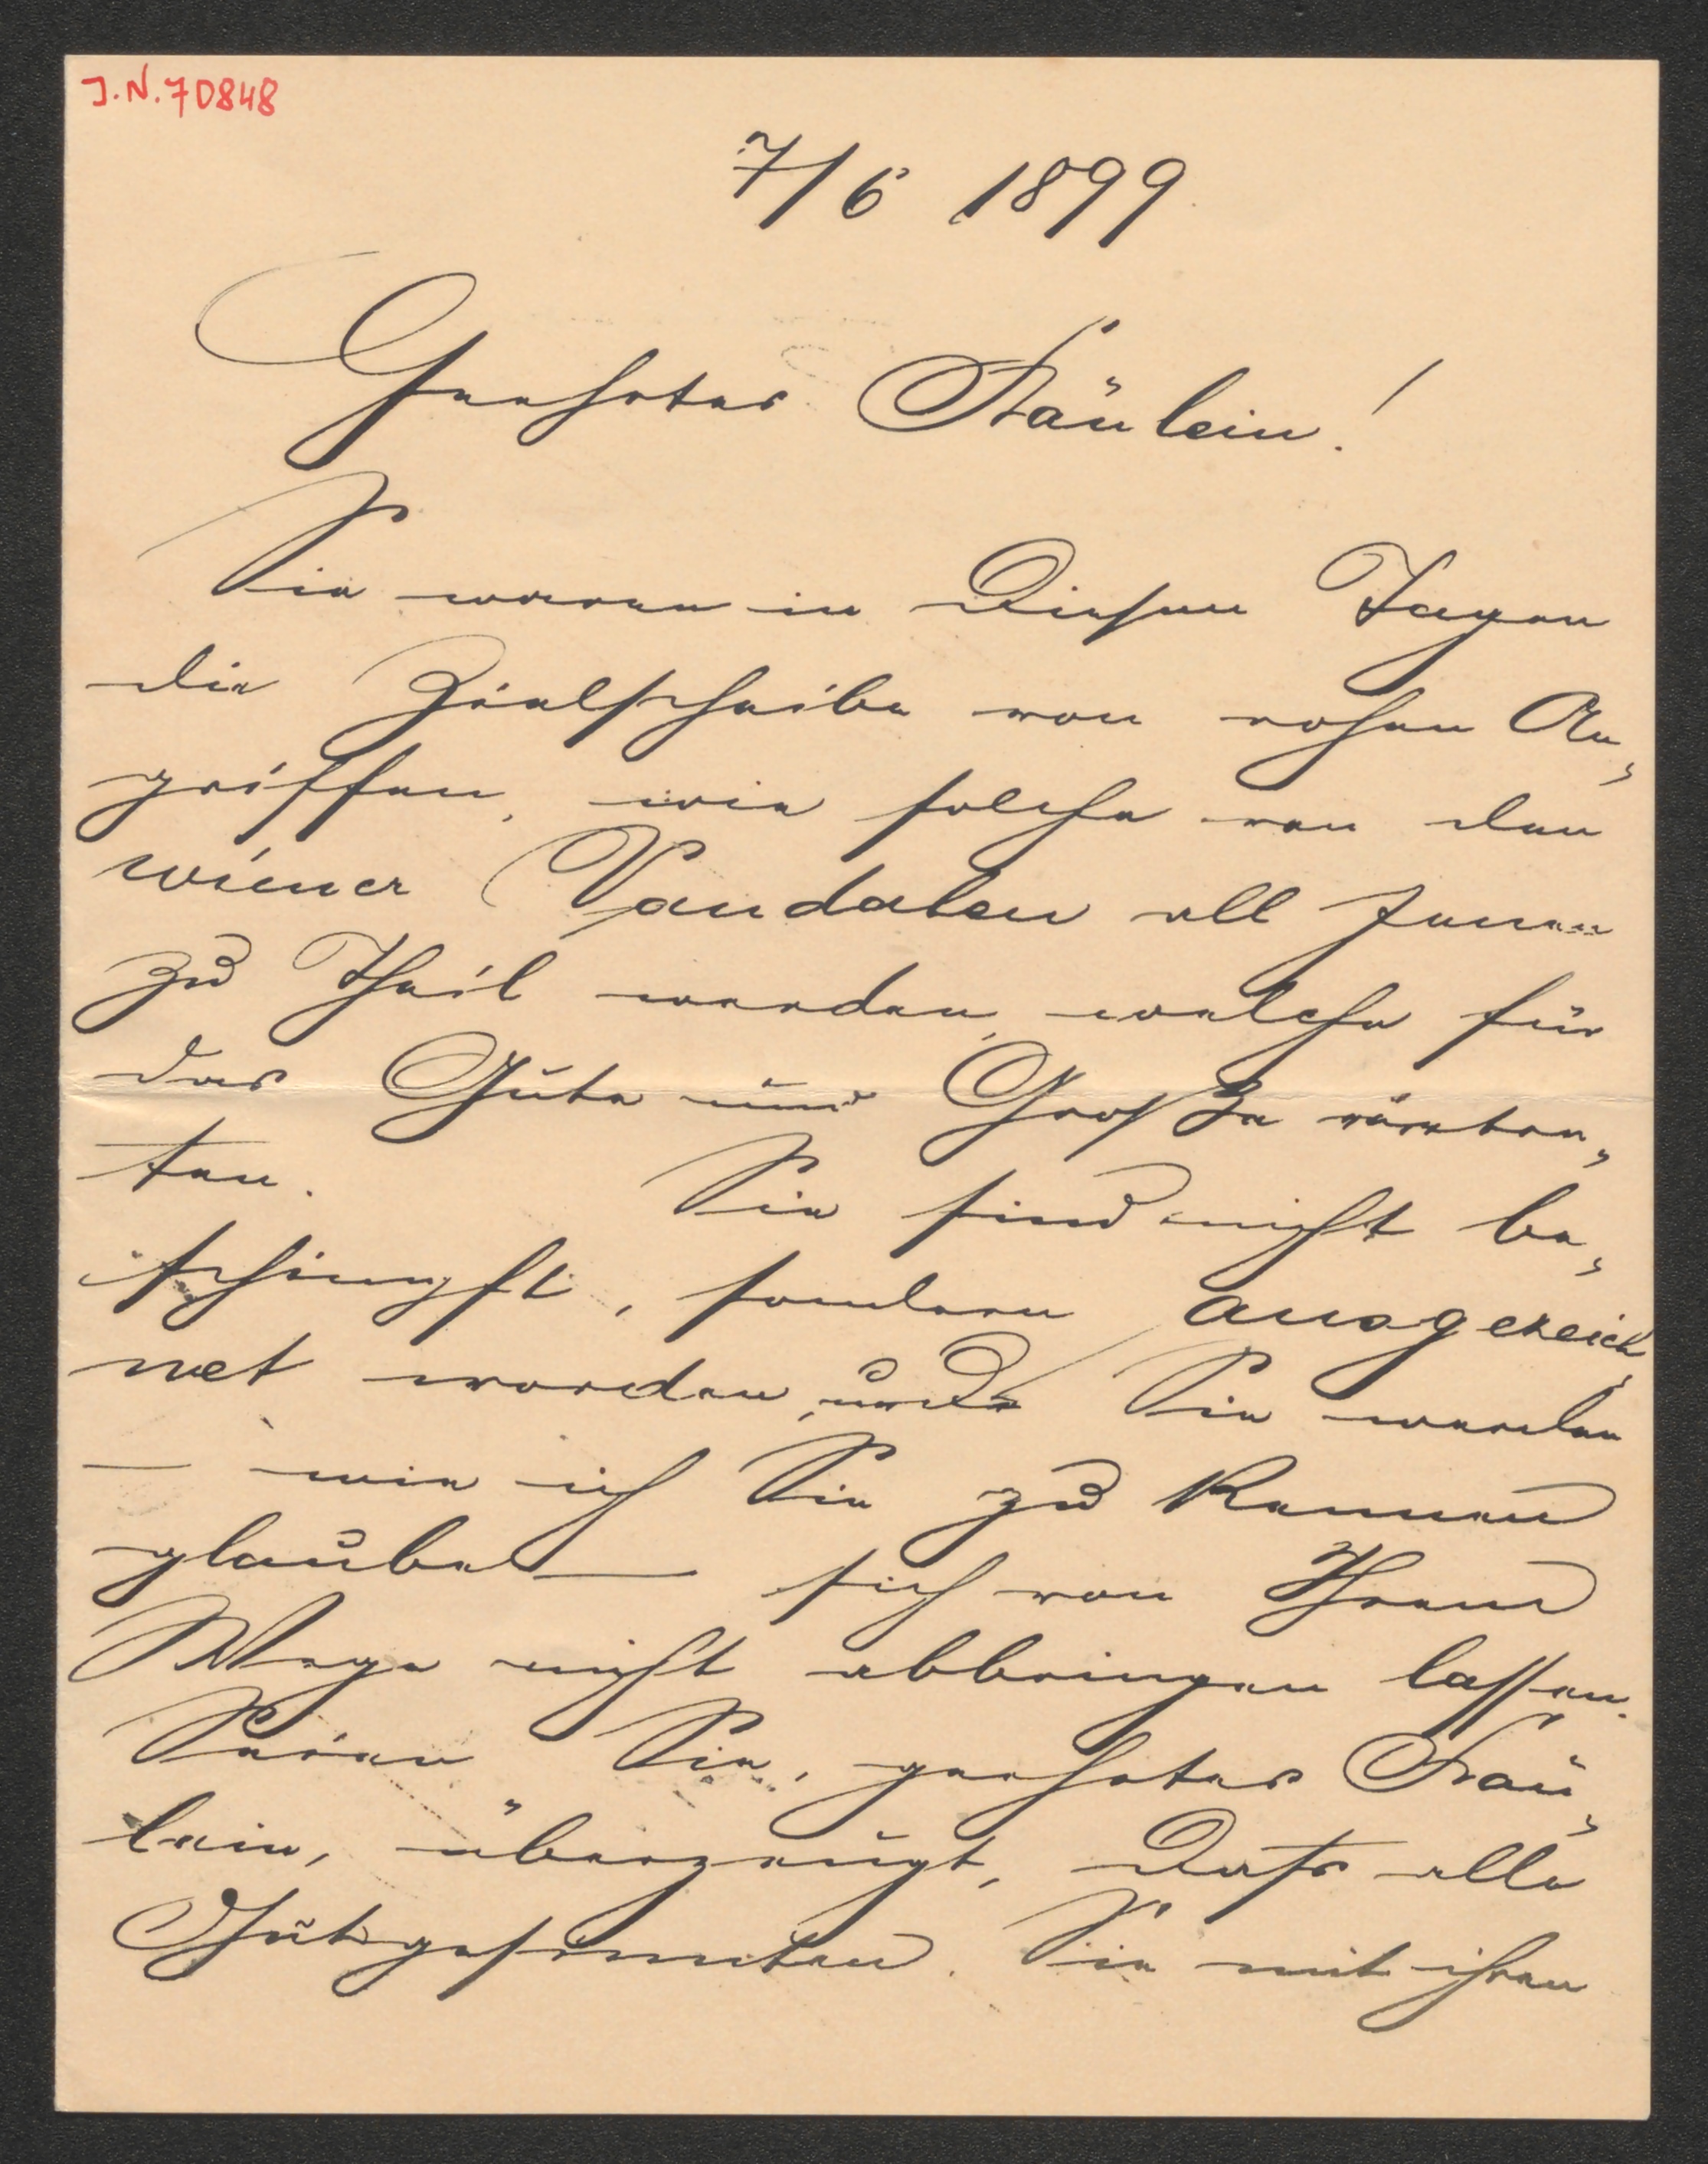 J.N. 70848
7/6 1899
Geehrtes Fräulein!
Sie waren in diesen Tagen
die Zielscheibe von rohen An,
griffen, wie solche von den
wiener Vandalen all Jenen
zu Theil werden, welche für
das Gute und Große eintre,
ten. Sie sind nicht be,
schimpft, sondern ausgezeich,
net worden, und Sie werden
— wie ich Sie zu kennen
glaube — sich von Ihrem
Wege nicht abbringen lassen.
Seien Sie, geehrtes Fräu,
lein, überzeugt, dass alle
Gutgesinnten Sie mit ihren